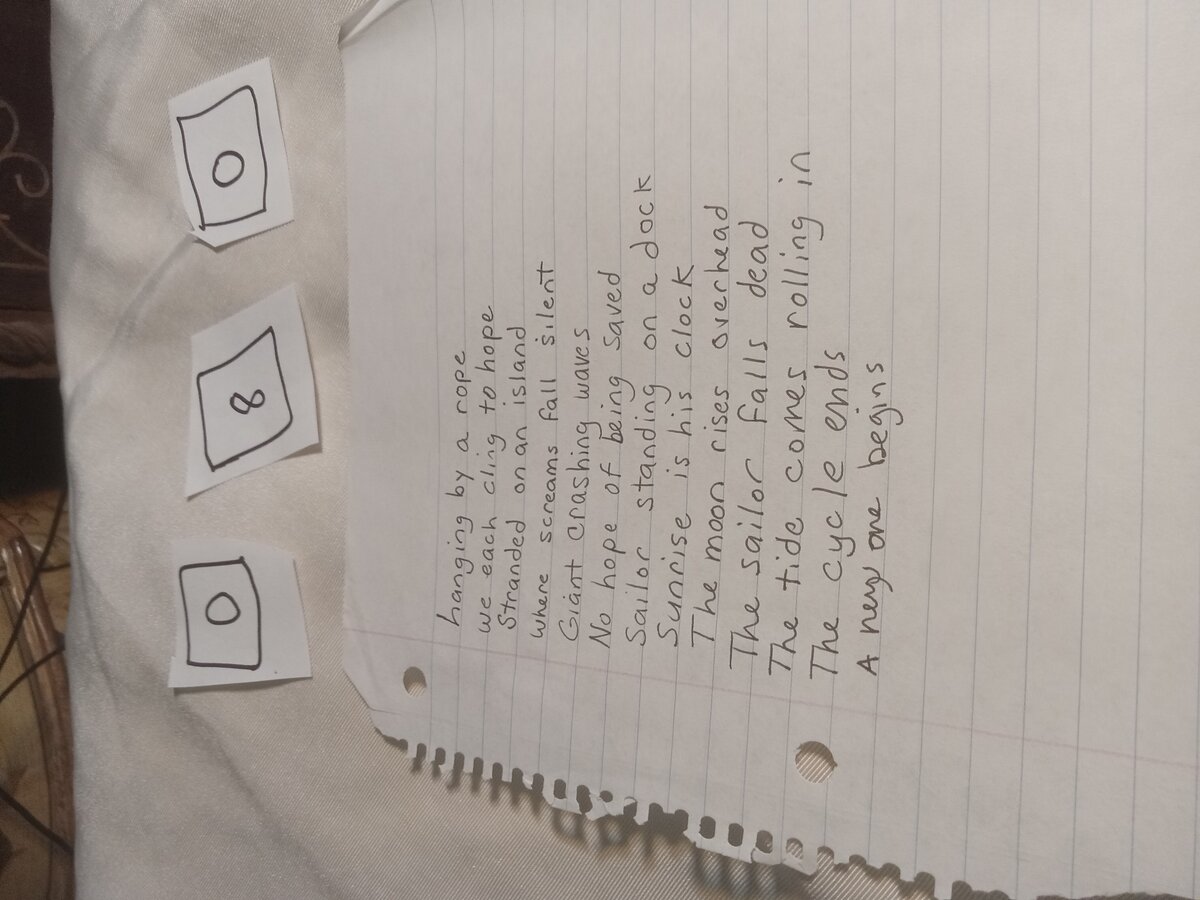 0 8 0
hanging by a rope
we each cling to hope
Stranded on an island
where screams fall silent
Giant crashing waves
No hope of being saved
Sailor standing on a dock
Sunrise is his clock
The moon rises overhead
The sailor falls dead
The tide comes rolling in
The cycle ends
A new one begins